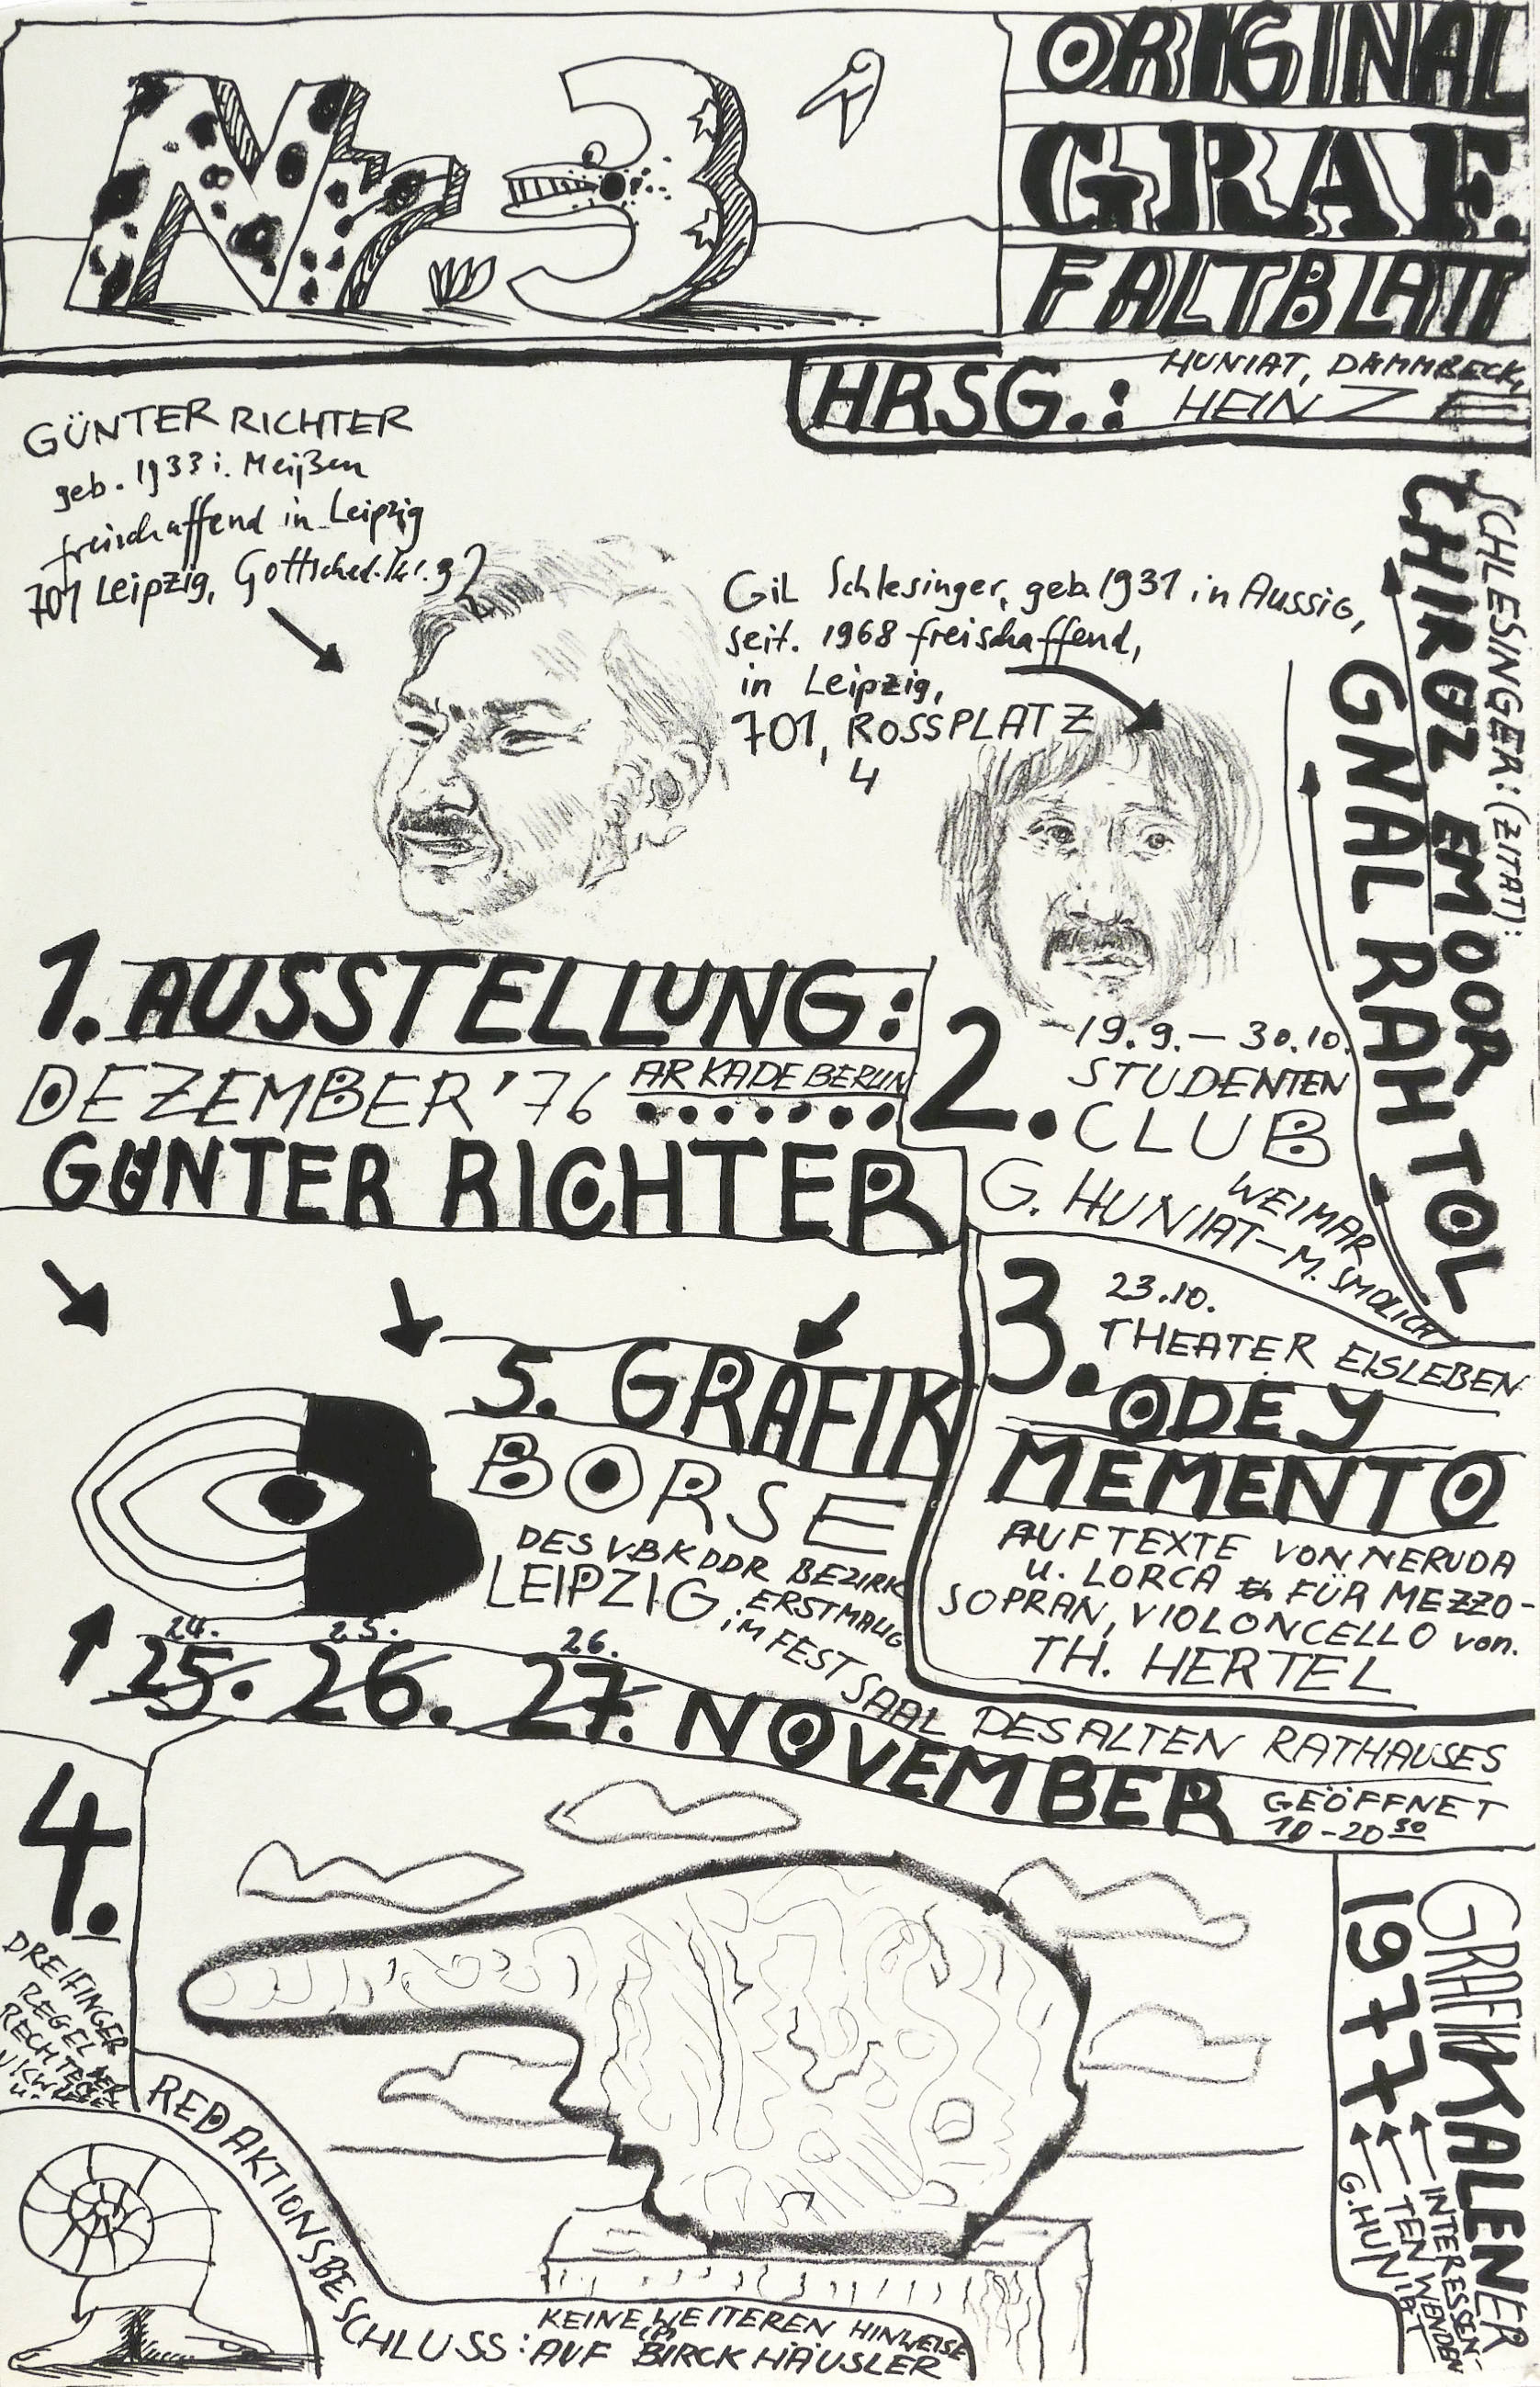 Nr 3
ORIGINAL
GRAF.
FALTBLATT
HRSG.: HUNIAT, DAMMBECK,
HEINZE
GÜNTER RICHTER
geb. 1933 i. Meißen
freischaffend in Leipzig
701 Leipzig, Gottsched.str. 9
Gil Schlesinger, geb. 1931 in Aussig,
seit. 1968 freischaffend,
in Leipzig,
701, ROSSPLATZ
4
SCHLESINGER: (ZITAT):
CHIROZ EM OOR TOL
GNAL RAH
1. AUSSTELLUNG:
DEZEMBER '76 ARKADE BERLIN
GÜNTER RICHTER
2. 19.9. – 30.10.
STUDENTEN
CLUB
WEIMAR
G. HUNIAT – M. SMOLICH
3. 23.10.
THEATER EISLEBEN
ODE Y
MEMENTO
AUF TEXTE VON NERUDA
u. LORCA FÜR MEZZO-
SOPRAN, VIOLONCELLO von.
TH. HERTEL
5. GRAFIK
BÖRSE
DES VBK DDR BEZIRK
LEIPZIG, ERSTMALIG
iM FESTSAAL DES ALTEN RATHAUSES
24. 25. 26.
25. 26. 27. NOVEMBER
GEÖFFNET
10 – 20 30
4.
DREIFINGER
REGEL DER
RECHTE
u.
REDAKTIONSBESCHLUSS:
KEINE WEITEREN HINWEISE
AUF BIRCKHÄUSLER
GRAFIKKALENER
1977
INTERESSEN-
TEN WENDEN
G. HUNIAT